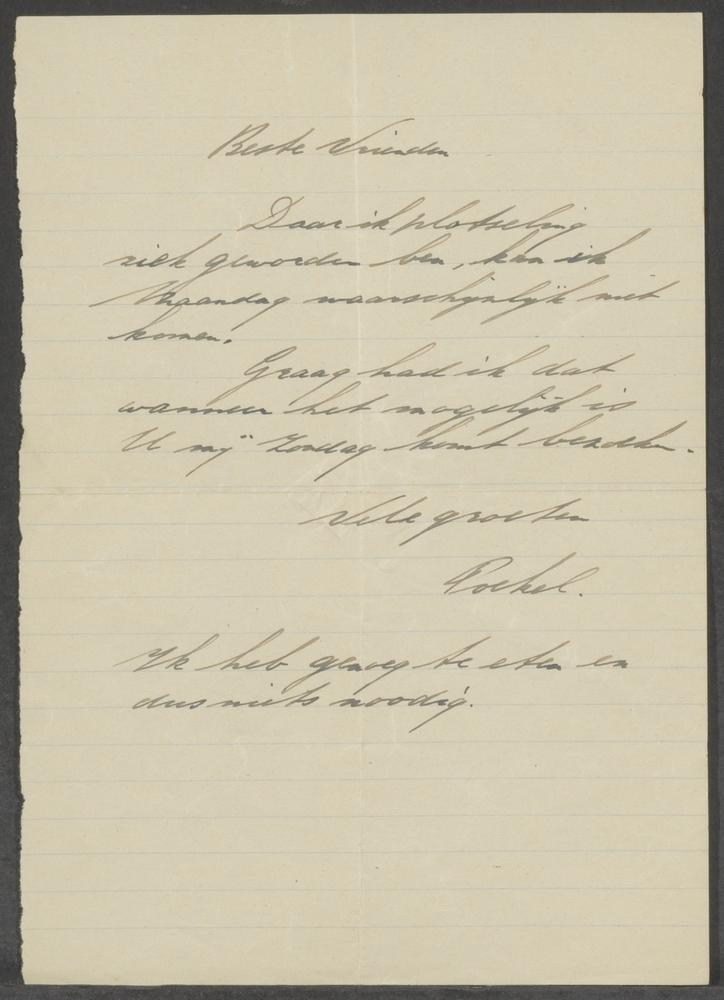 Beste Vrienden
Daar ik plotseling
ziek geworden ben, kan ik
Maandag waarschijnlijk niet
komen.
Graag had ik dat
wanneer het mogelijk is
U mij Zondag komt bezoeken.
Vele groeten
Poekel.
Ik heb genoeg te eten en
dus niets noodig.